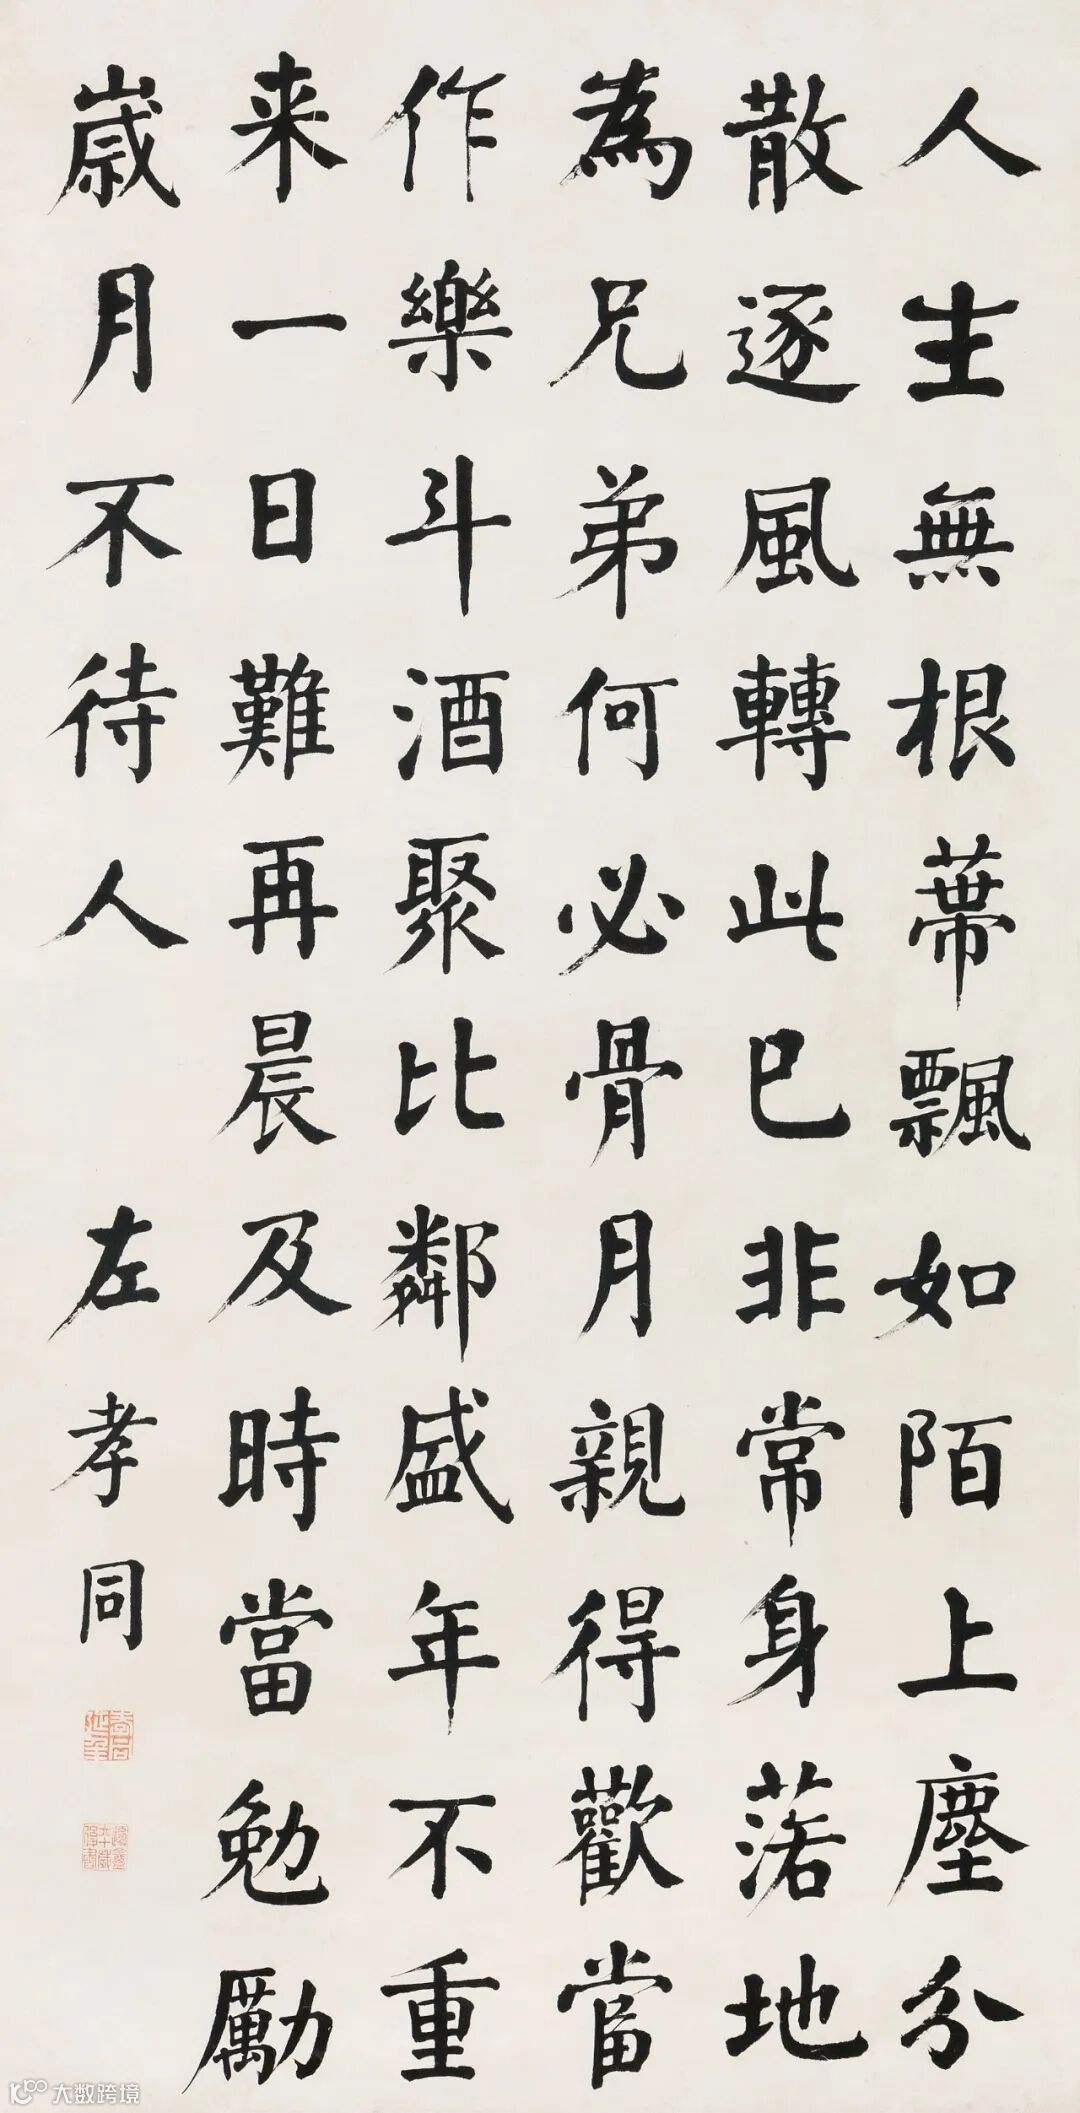 人生無根蔕飄如陌上塵分
散逐風轉此已非常身落地
為兄弟何必骨月親得歡當
作樂斗酒聚比鄰盛年不重
来一日難再晨及時當勉勵
歲月不待人
左孝同
大数跨境